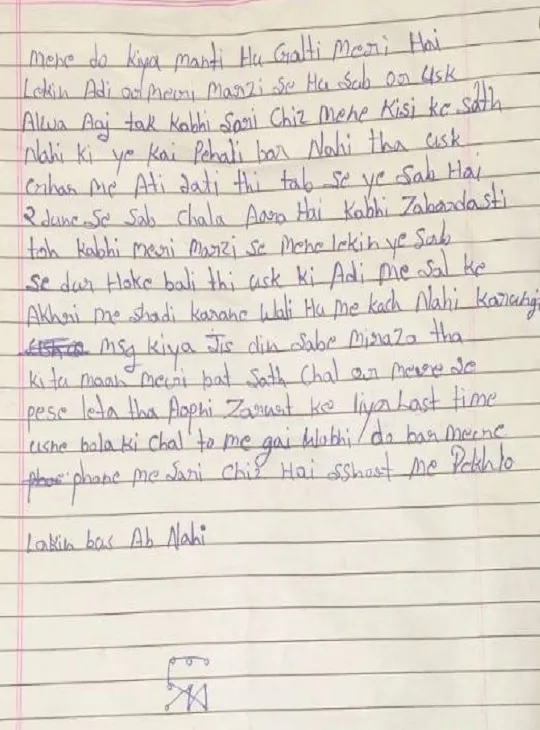 mene do kiya manti Hu Galti Meri Hai
Lekin Adi or meri Marzi se Hu Sab or Usk
Alwa Aaj tak Kabhi Sari Chiz Mene Kisi ke sath
Nahi Ki ye Kai Pehali bar Nahi tha usk
me Ati Jati thi tab se ye Sab Hai
2 June Se Sab Chala Aara Hai Kabhi Zabardasti
toh Kabhi meri Marzi se Mene lekin ye Sab
se dur Hoke bali thi usk ki Adi me Sal ke
Akhri me shadi karane Wali Hu me kach Nahi Karungi
msg kiya Jis din Sabe Miraza tha
ki tu maan meri bat Sath Chal or mere se
pese leta tha Aaphi Zarurt ke liya Last time
usne bola ki Chal to me gai Wobhi do bar meene
phone me Sari Chiz Hai sshost Me Dekhlo
Lakin bas Ab Nahi